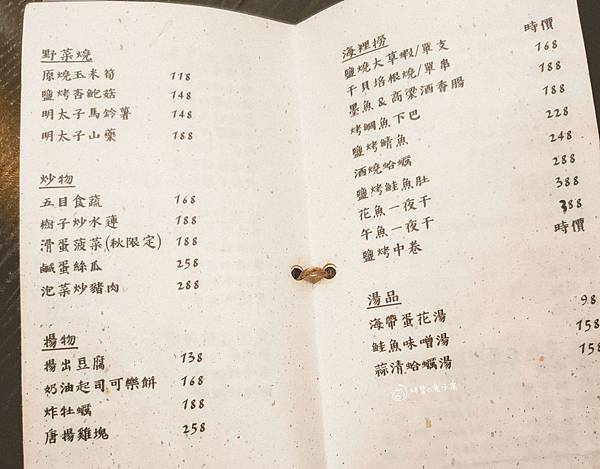 野菜燒
原燒玉米筍 118
鹽烤杏鮑菇 148
明太子馬鈴薯 148
明太子山藥 188
炒物
五目食蔬 168
樹子炒水蓮 188
滑蛋菠菜(秋限定) 188
鹹蛋絲瓜 258
泡菜炒豬肉 288
揚物
揚出豆腐 138
奶油起司可樂餅 168
炸牡蠣 188
唐揚雞塊 258
海裡撈
鹽燒大草蝦/單支 時價
干貝培根燒/單串 168
墨魚&高粱酒香腸 188
烤鯛魚下巴 188
鹽烤鯖魚 228
酒燒蛤蠣 248
鹽烤鮭魚肚 288
花魚一夜干 388
午魚一夜干 388
鹽烤中卷 時價
湯品
海帶蛋花湯 98
鮭魚味噌湯 158
蒜清蛤蠣湯 158